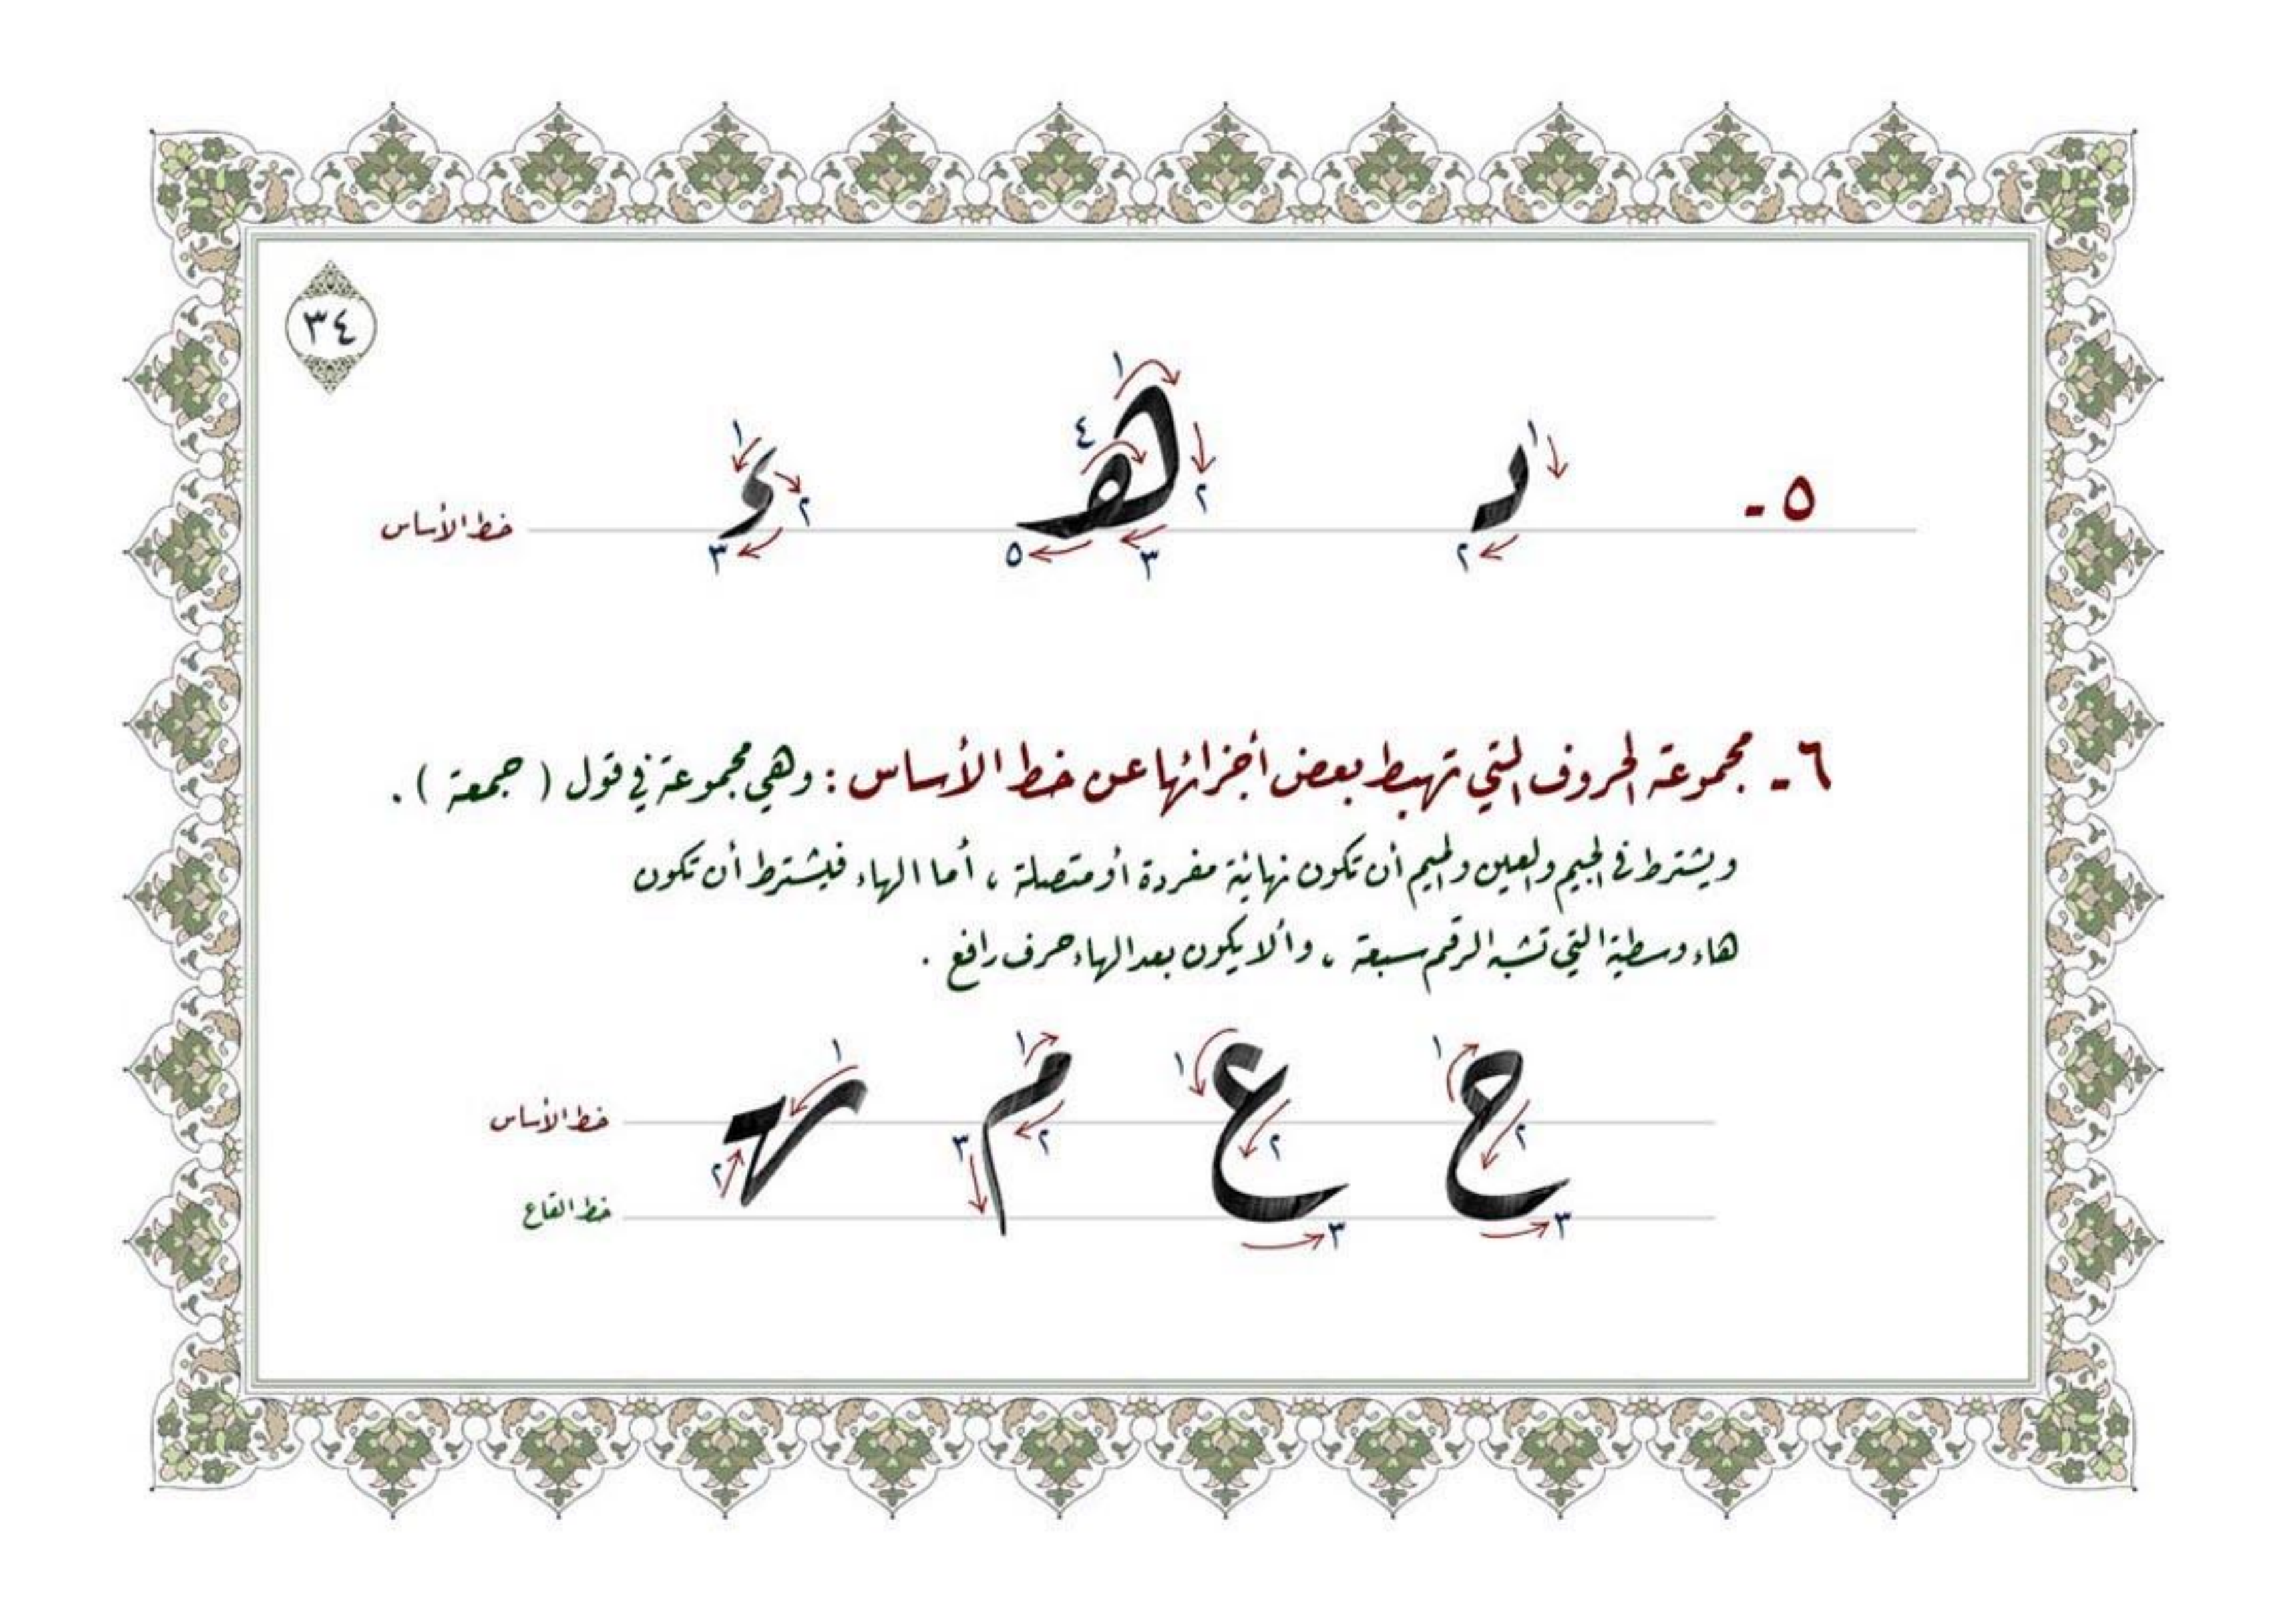 ٣٤
١ ٢ ١ ٢ ٣ ٤ ٥ ١ ٢ ٣
٥ -
خط الأساس
٦ - مجموعة الحروف التي تهبط بعض أجزائها عن خط الأساس : وهي مجموعة في قول ( جمعة ) .
ويشترط في الجيم والعين والميم أن تكون نهائية مفردة أو متصلة ، أما الهاء فيشترط أن تكون
هاء وسطية التي تشبه الرقم سبعة ، وألا يكون بعد الهاء حرف رافع .
ح ع م ـهـ
١ ٢ ٣ ١ ٢ ٣ ١ ٢ ٣ ١ ٢
خط الأساس
خط القاع